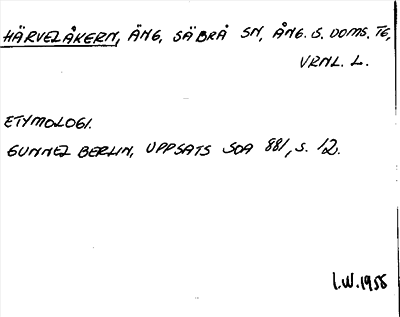 HÄRVELÅKERN, ÄNG, SÄBRÅ SN, ÅNG. S. DOMS. TG,
VRNL. L.
ETYMOLOGI.
GUNNEL BERLIN, UPPSATS SOA 881, S. 12.
I.W. 1955